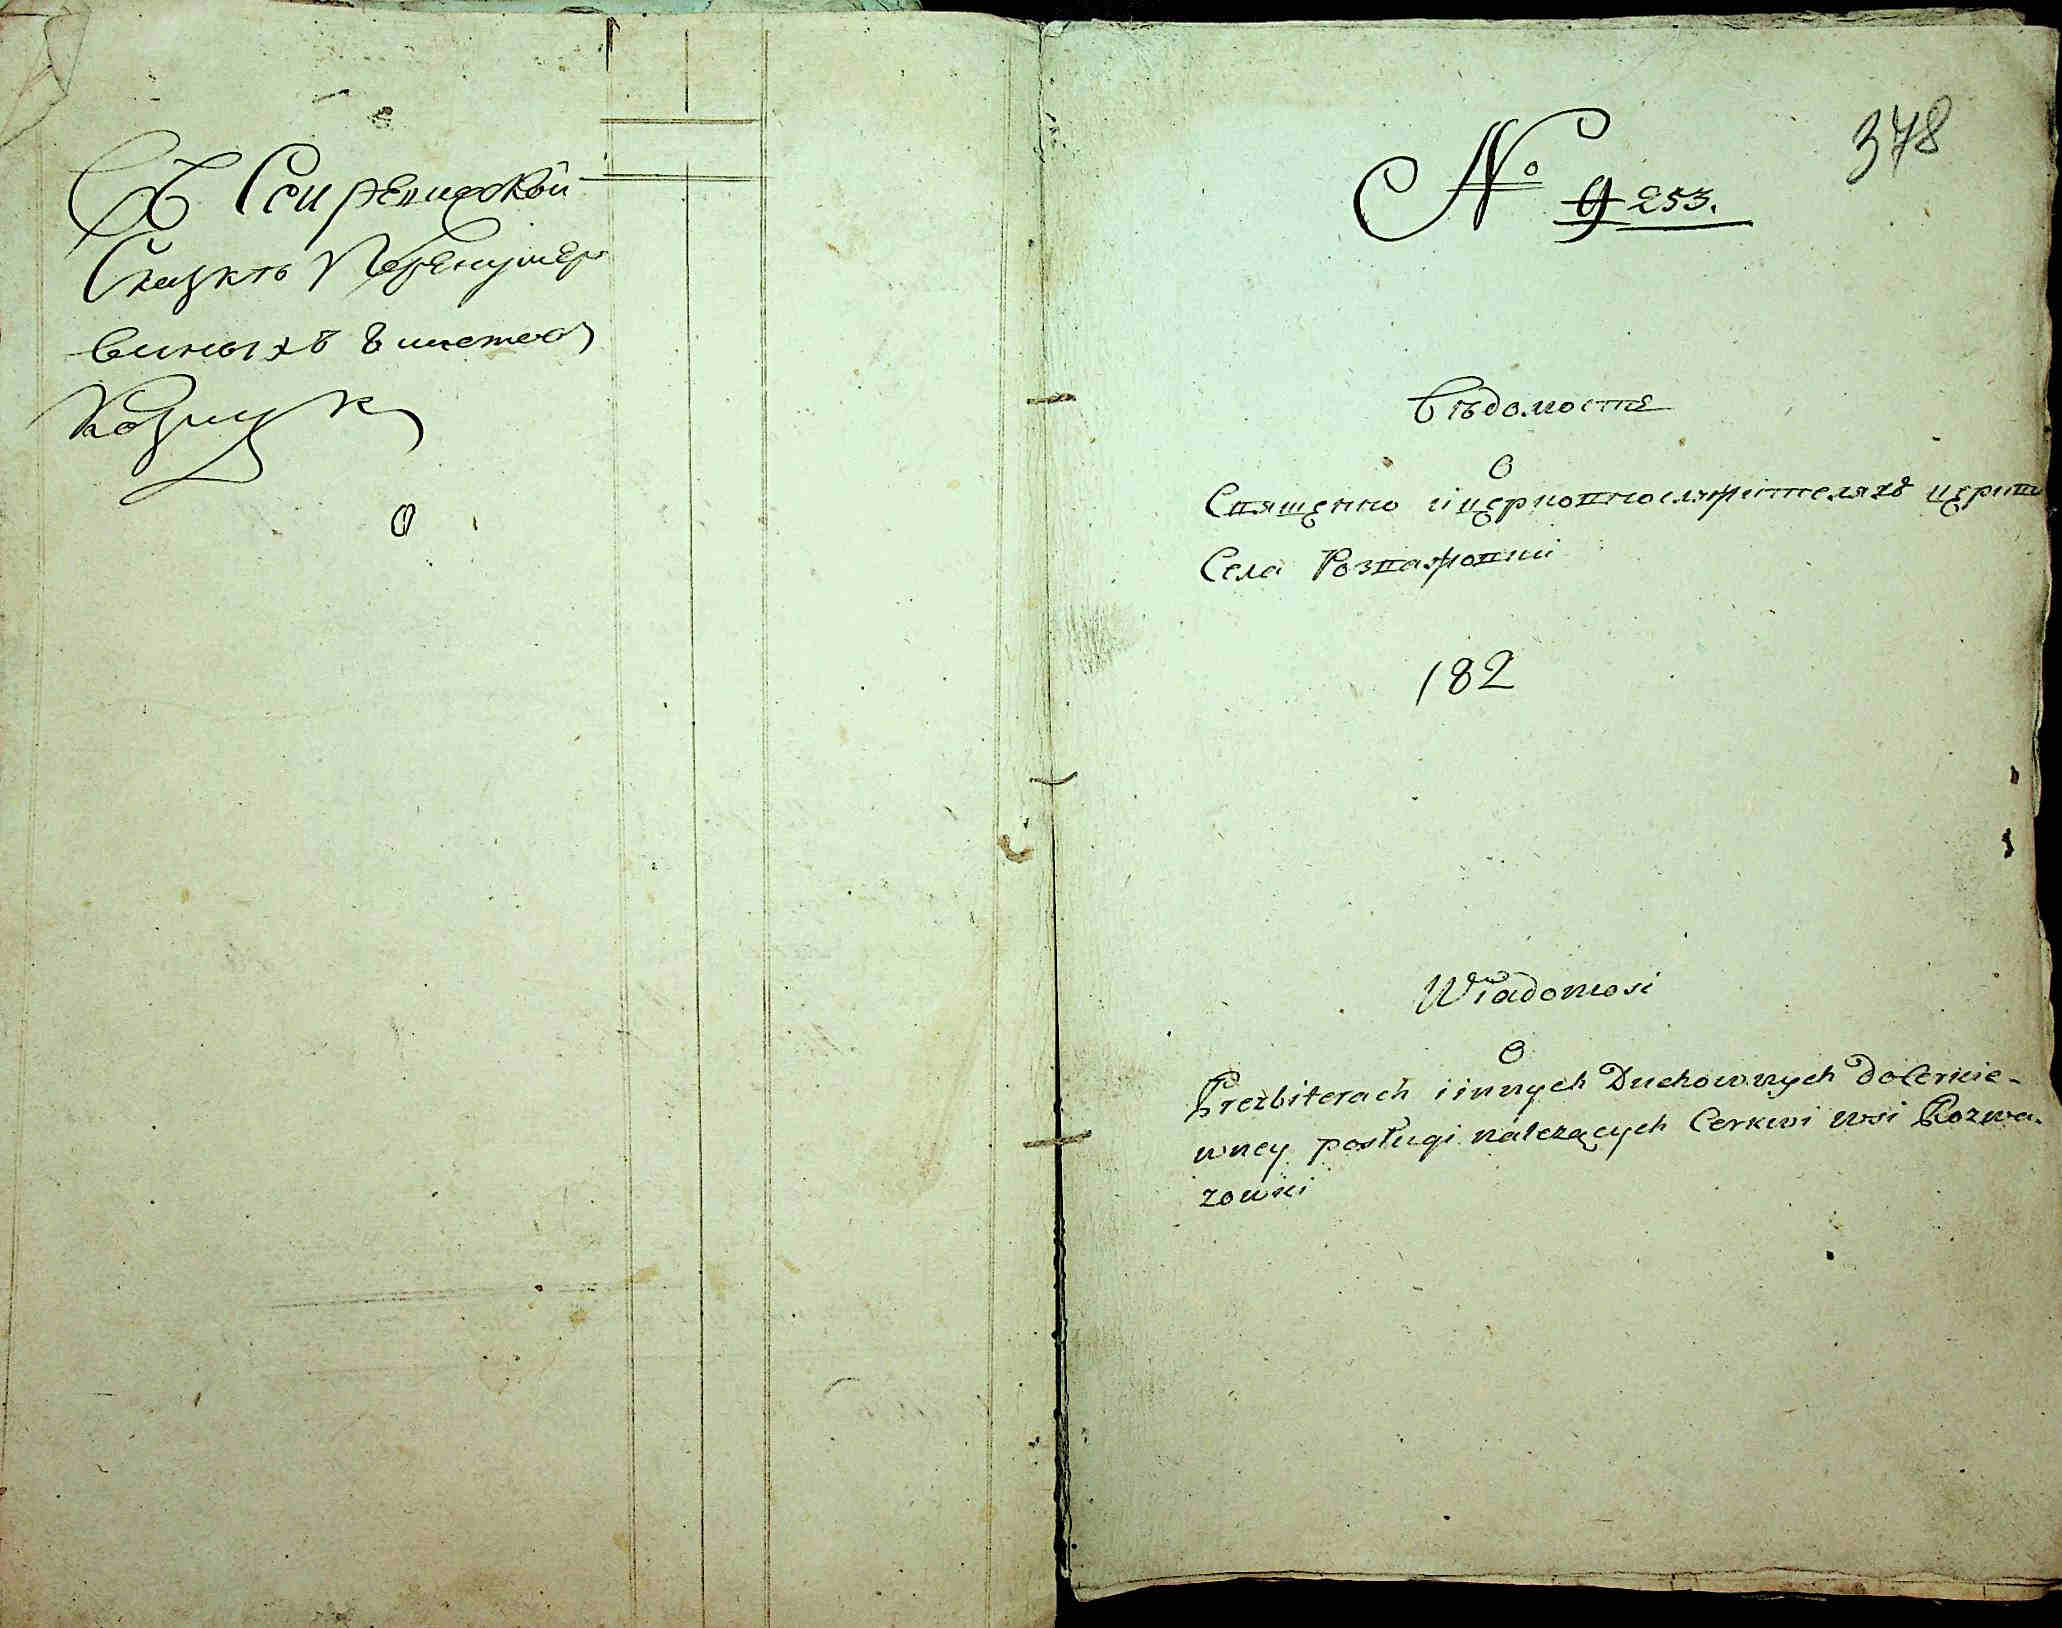 Въ Сей ревижской
Сказкѣ Перенумеро
ванныхъ 8 листов
378
№ 9 253.
Вѣдомость
О
Священно и церковнослужителяхъ церкви
Села Розважовки
182
Wiadomosi
O
Prezbiterach i innych Duchownych do Cerkie-
wney posługi należących Cerkwi wsi Rozwa-
żowki